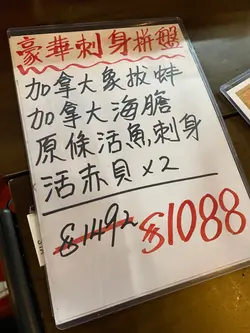 豪華刺身拼盤
加拿大象拔蚌
加拿大海膽
原條活魚刺身
活赤貝x2
$1492 $1088